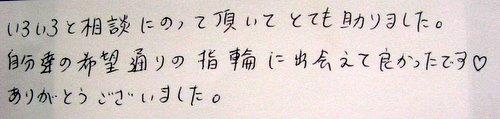 いろいろと相談にのって頂いてとても助りました。
自分達の希望通りの指輪に出会えて良かったです♡
ありがとうございました。